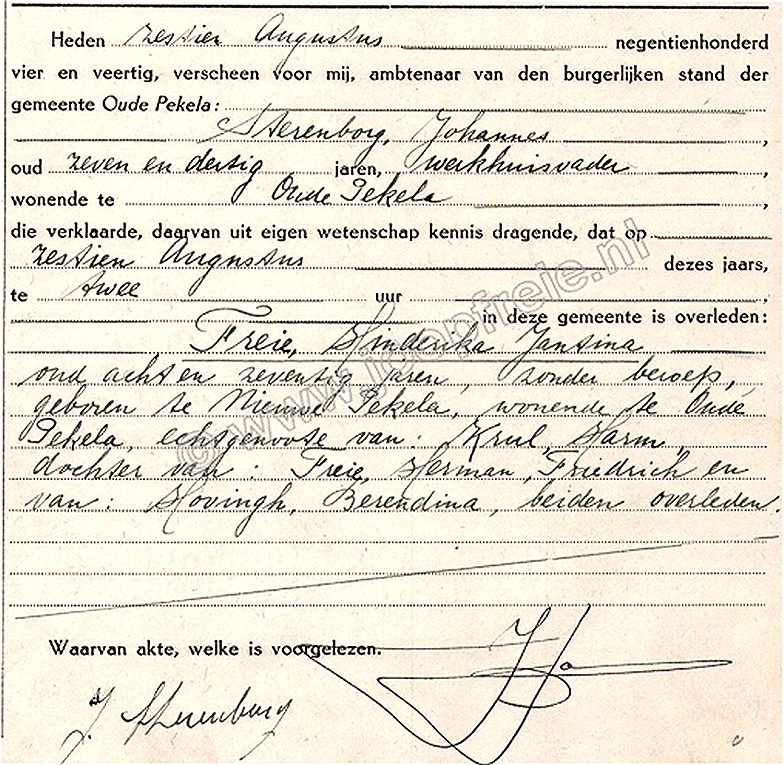 Heden zestien Augustus negentienhonderd
vier en veertig, verscheen voor mij, ambtenaar van den burgerlijken stand der
gemeente Oude Pekela:
Sterenborg, Johannes ,
oud zeven en dertig jaren, werkhuisvader ,
wonende te Oude Pekela ,
die verklaarde, daarvan uit eigen wetenschap kennis dragende, dat op
zestien Augustus dezes jaars,
te twee uur ,
in deze gemeente is overleden:
Freie, Hinderika Jantina
oud acht en zeventig jaren, zonder beroep,
geboren te Nieuwe Pekela, wonende te Oude
Pekela, echtgenoote van: Krul, Harm,
dochter van: Freie, Herman, Friedrich en
van: Hovingh, Berendina, beiden overleden.
Waarvan akte, welke is voorgelezen.
J. Sterenborg
© www.joopfreie.nl